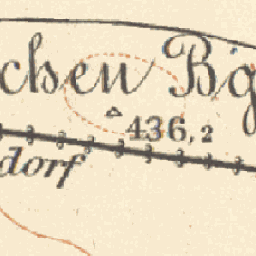 chen Bg
436,2
dorf